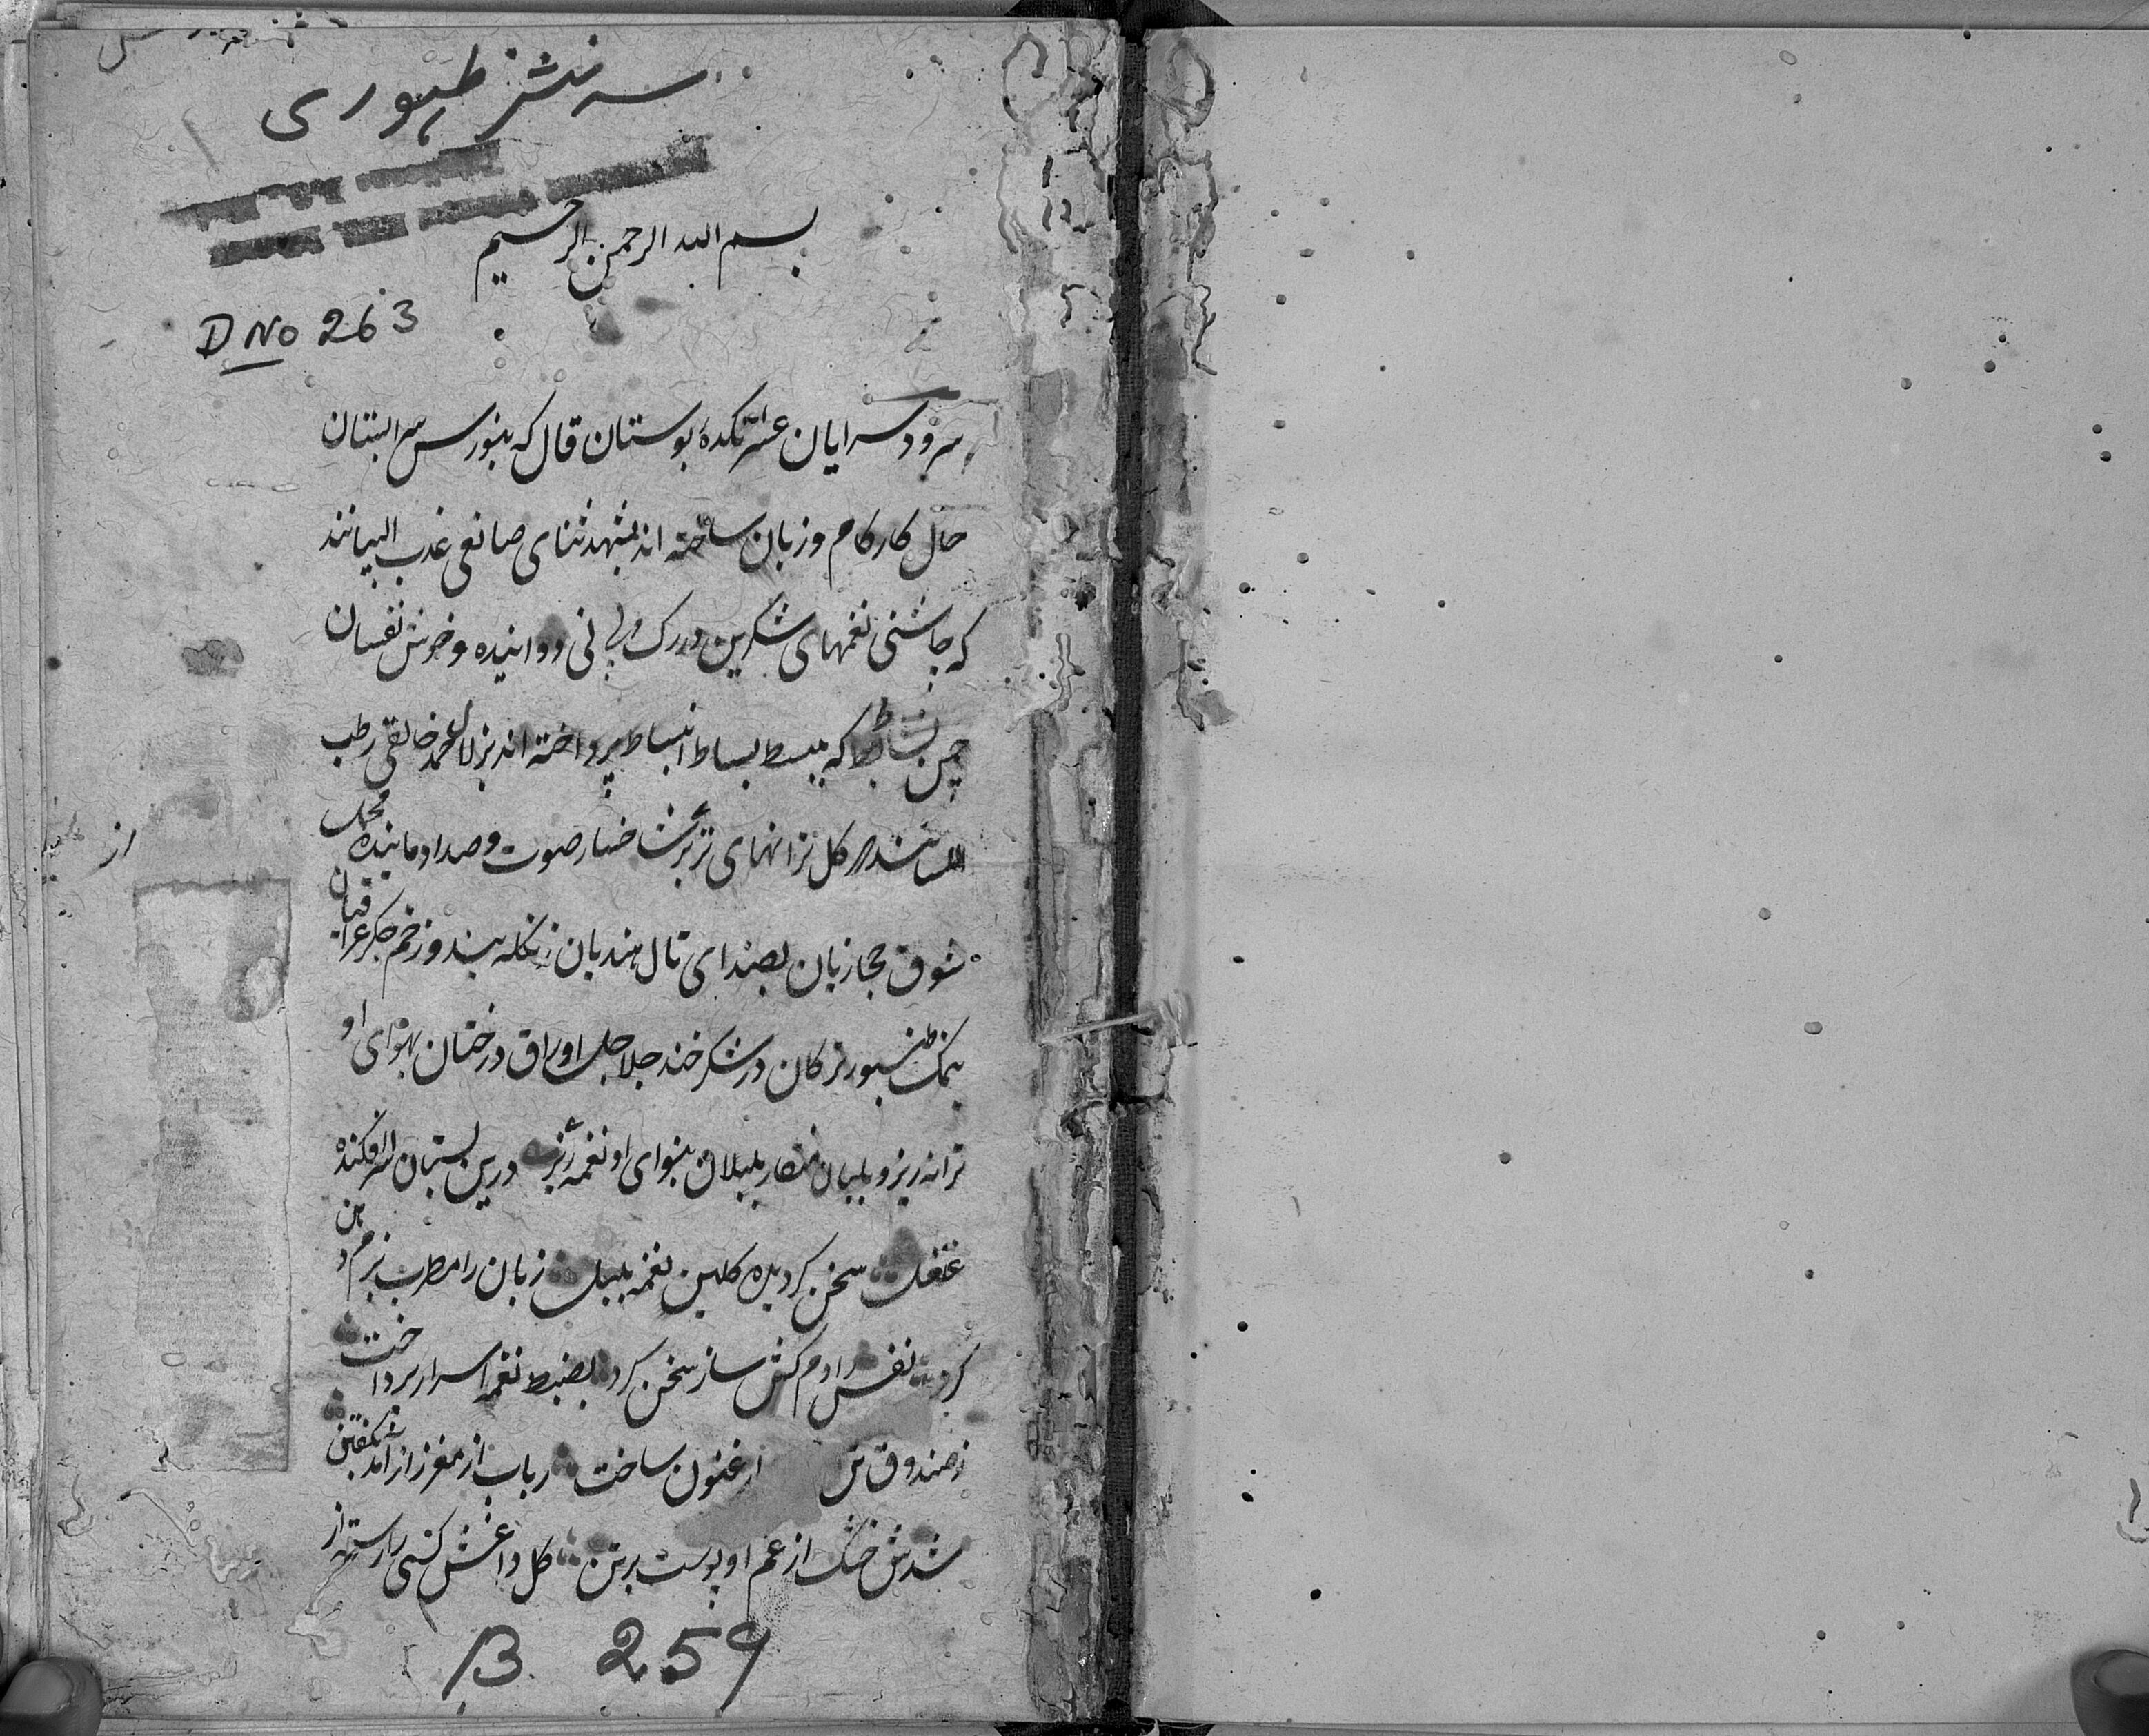 سه نثر ظهوری
بسم الله الرحمن الرحیم
D No 263
سرود سرایان عشرتکدهٔ بوستان قال که بنورس سرابستان
حال کار کام و زبان ساخته اند بشهد ثنای صانعی عذب البیانند
که چاشنی نغمهای شکرین در رک و پی نی دوانیده و خوش نفسان
چمن نشاط که ببسط بساط انبساط پرداخته اند بزلال حمد خالقی رطب
اللسانند که کل ترانهای تر بر شاخسار صوت و صدا دمانیده محمل
شوق حجازیان بصدای تال هندیان زنکله بند و زخم جکر عراقیان
بنمک طنبور ترکان در شکر خند جلاجل اوراق درختان بهوای او
ترانه ریز و بلبان منقار بلبلان بنوای او نغمه خیز درین بستان سرا فکنده
غلغل سخن کردیده کلبن نغمه بلبل زبان را مطرب بزم دهن
کرد نفس را دم کش ساز سخن کرد بضبط نغمه اسرار پرداخت
ز صندوق تن ارغنون ساخت رباب از مغز راز آمد بکفتن
شدش خشک از غم او پوست بر تن کل داغش کسی را رسته از
از
B 259